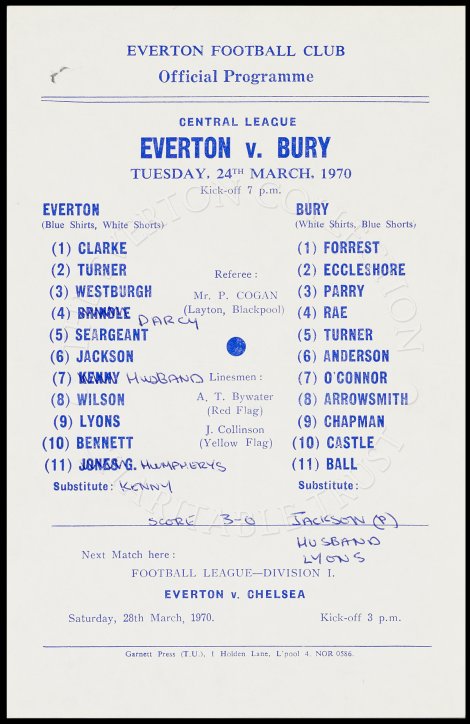 EVERTON FOOTBALL CLUB
Official Programme
CENTRAL LEAGUE
EVERTON v. BURY
TUESDAY, 24TH MARCH, 1970
Kick-off 7 p.m.
EVERTON
(Blue Shirts, White Shorts)
(1) CLARKE
(2) TURNER
(3) WESTBURGH
(4) BRINDLE DARCY
(5) SEARGEANT
(6) JACKSON
(7) KENNY HUSBAND
(8) WILSON
(9) LYONS
(10) BENNETT
(11) JONES G. HUMPHERYS
Substitute: KENNY
Referee:
Mr. P. COGAN
(Layton, Blackpool)
Linesmen:
A. T. Bywater
(Red Flag)
J. Collinson
(Yellow Flag)
BURY
(White Shirts, Blue Shorts)
(1) FORREST
(2) ECCLESHORE
(3) PARRY
(4) RAE
(5) TURNER
(6) ANDERSON
(7) O'CONNOR
(8) ARROWSMITH
(9) CHAPMAN
(10) CASTLE
(11) BALL
Substitute:
SCORE 3-0 JACKSON (P)
HUSBAND
LYONS
Next Match here:
FOOTBALL LEAGUE—DIVISION I.
EVERTON v. CHELSEA
Saturday, 28th March, 1970. Kick-off 3 p.m.
Garnett Press (T.U.), 1 Holden Lane, L'pool 4. NOR 0586.
EVERTON COLLECTION
CHARITABLE TRUST